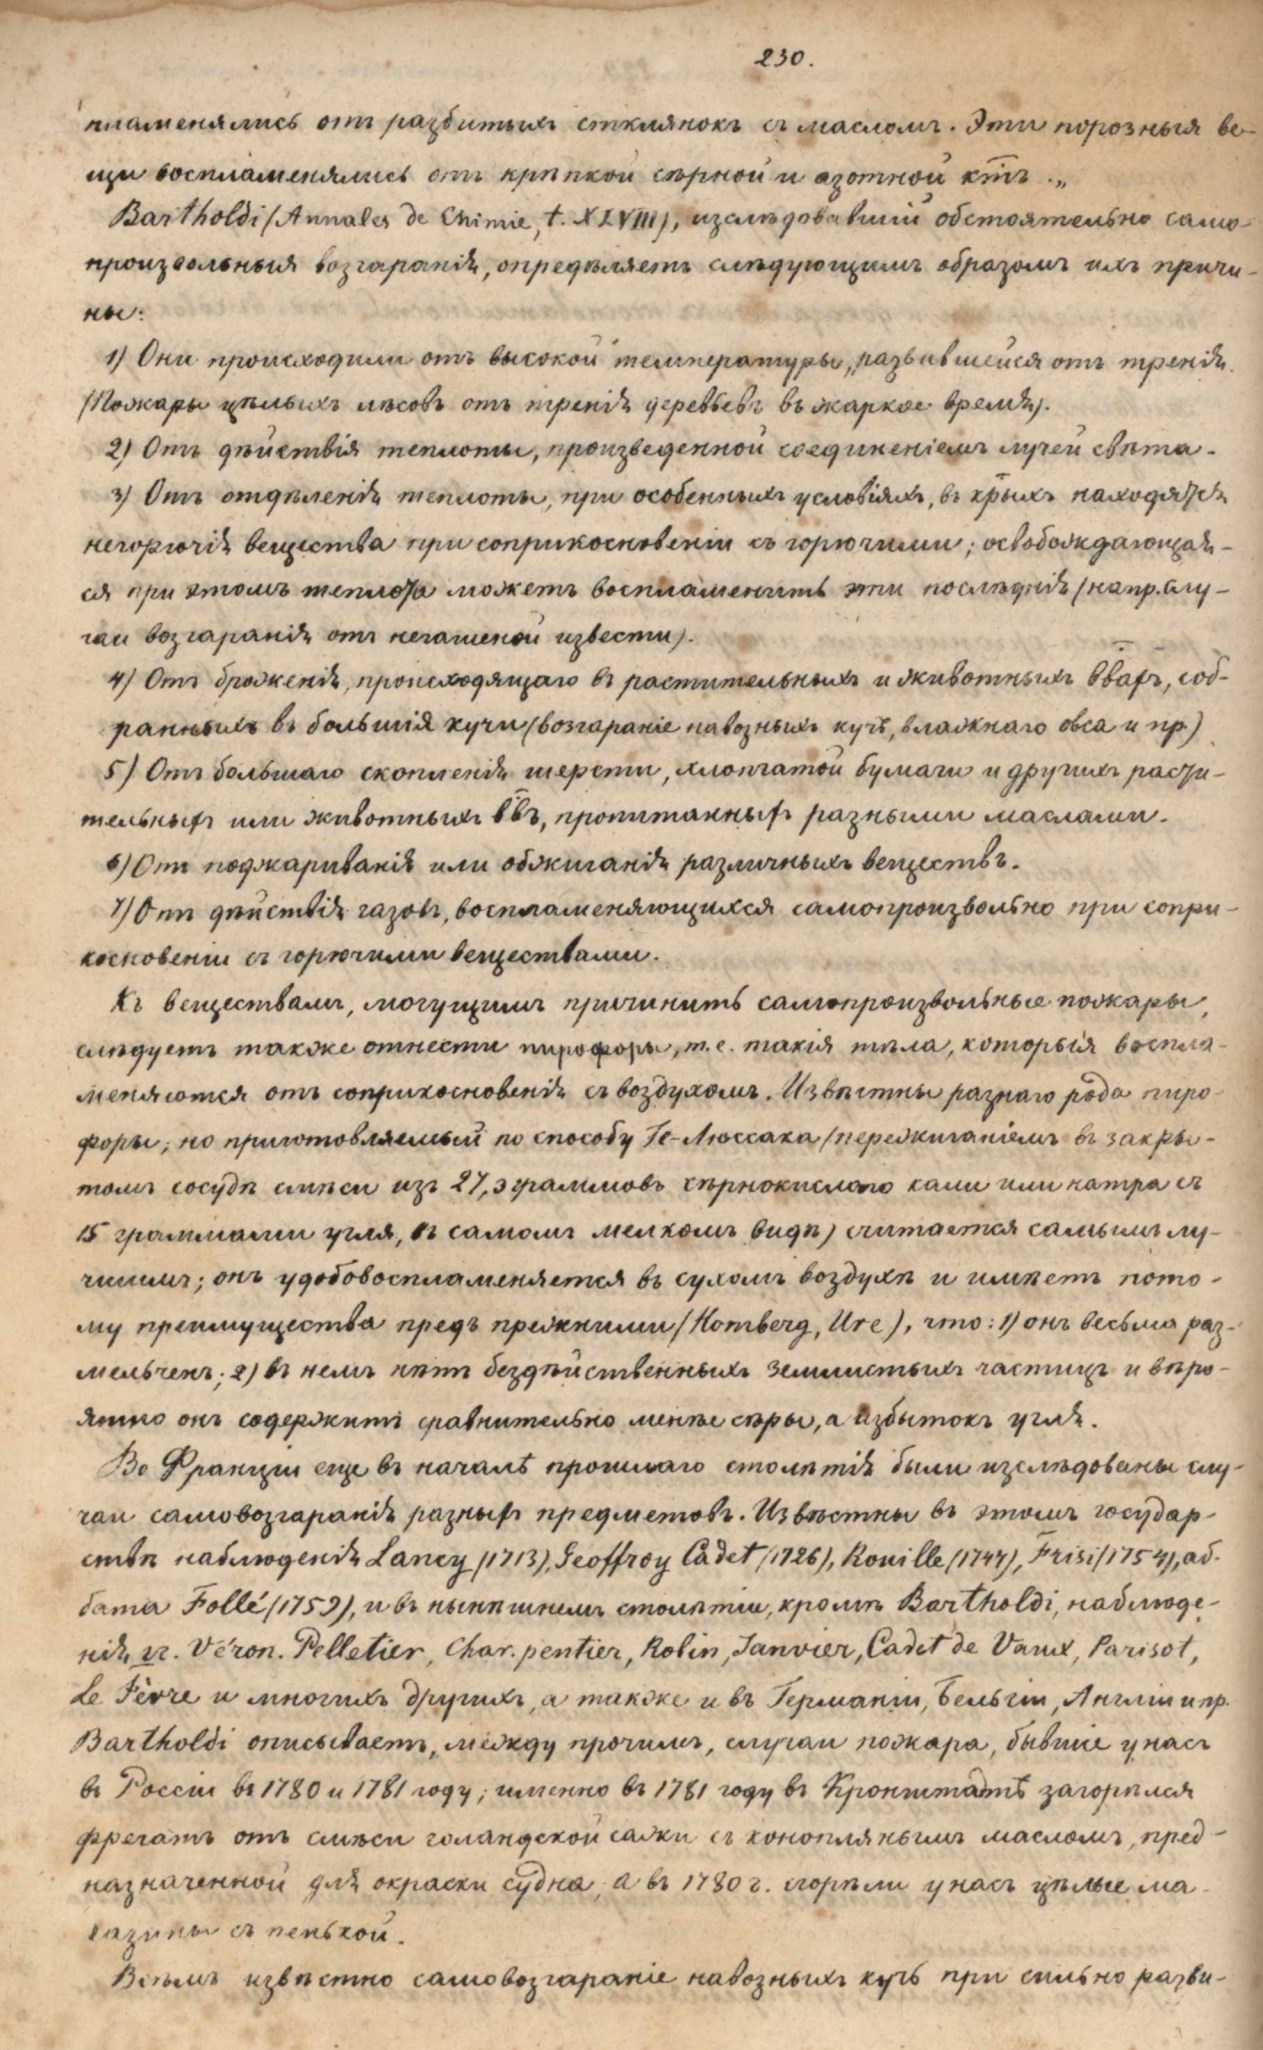 230.
пламенялись отъ разбитыхъ стклянокъ съ масломъ. Эти порозныя ве-
щи воспламенялись отъ крѣпкой сѣрной и азотной к̅тъ.„
Bartholdi (Annales de Chimie, t. XLVIII), изслѣдовавшій обстоятельно само-
произвольныя возгаранія, опредѣляетъ слѣдующимъ образомъ ихъ причи-
ны:
1) Они происходили отъ высокой температуры, развившейся отъ тренія.
(Пожары цѣлыхъ лѣсовъ отъ тренія деревьевъ въ жаркое время).
2) Отъ дѣйствія теплоты, произведенной соединеніемъ лучей свѣта.
3) Отъ отдѣленія теплоты, при особенныхъ условіяхъ, въ к̅рыхъ находятся
негорючія вещества при соприкосновеніи съ горючими; освобождающая-
ся при этомъ теплота можетъ воспламенить эти послѣднія (напр. слу-
чаи возгаранія отъ негашеной извести).
4) Отъ броженія, происходящаго въ растительныхъ и животныхъ в̅вахъ, соб-
ранныхъ въ большія кучи (возгараніе навозныхъ кучъ, влажнаго овса и пр)
5) Отъ большаго скопленія шерсти, хлопчатой бумаги и другихъ расти-
тельныхъ или животныхъ в̅въ, пропитанныхъ разными маслами.
6) Отъ поджариванія или обжиганія различныхъ веществъ.
7) Отъ дѣйствія газовъ, воспламеняющихся самопроизвольно при сопри-
косновеніи съ горючими веществами.
Къ веществамъ, могущимъ причинить самопроизвольные пожары,
слѣдуетъ также отнести пирофоры, т.е. такія тѣла, которыя воспла-
меняются отъ соприкосновенія съ воздухомъ. Извѣстны разнаго рода пиро-
форы; но приготовляемый по способу Ге-Люссака (пережиганіемъ въ закры-
томъ сосудѣ смѣси изъ 27,3 граммовъ сѣрнокислаго кали или натра съ
15 граммами угля, въ самомъ мелкомъ видѣ) считается самымъ лу-
чшимъ; онъ удобовоспламеняется въ сухомъ воздухѣ и имѣетъ пото-
му преимущества предъ прежними (Homberg, Ure), что: 1) онъ весьма раз-
мельченъ; 2) въ немъ нѣтъ бездѣйственныхъ землистыхъ частицъ и вѣро-
ятно онъ содержитъ сравнительно менѣе сѣры, а избытокъ угля.
Во Франціи еще въ началѣ прошлаго столѣтія были изслѣдованы слу-
чаи самовозгаранія разныхъ предметовъ. Извѣстны въ этомъ государ-
ствѣ наблюденія Lancy (1713), Geoffroy Cadet (1726), Rouille (1744), Frisi (1754), аб-
бата Follé (1759), и въ нынѣшнемъ столѣтіи, кромѣ Bartholdi, наблюде-
нія гг. Véron. Pelletier, Char. pentier, Robin, Janvier, Cadet de Vaux, Parisot,
Le Fèvre и многихъ другихъ, а также и въ Германіи, Бельгіи, Англіи и пр.
Bartholdi описываетъ, между прочимъ, случаи пожара, бывшіе у насъ
въ Россіи въ 1780 и 1781 году; именно въ 1781 году въ Кронштадтѣ загорѣлся
фрегатъ отъ смѣси голандской сажи съ коноплянымъ масломъ, пред-
назначенной для окраски судна, а въ 1780 г. сгорѣли у насъ цѣлые ма-
газины съ пенькой.
Всѣмъ извѣстно самовозгараніе навозныхъ кучъ при сильно разви-